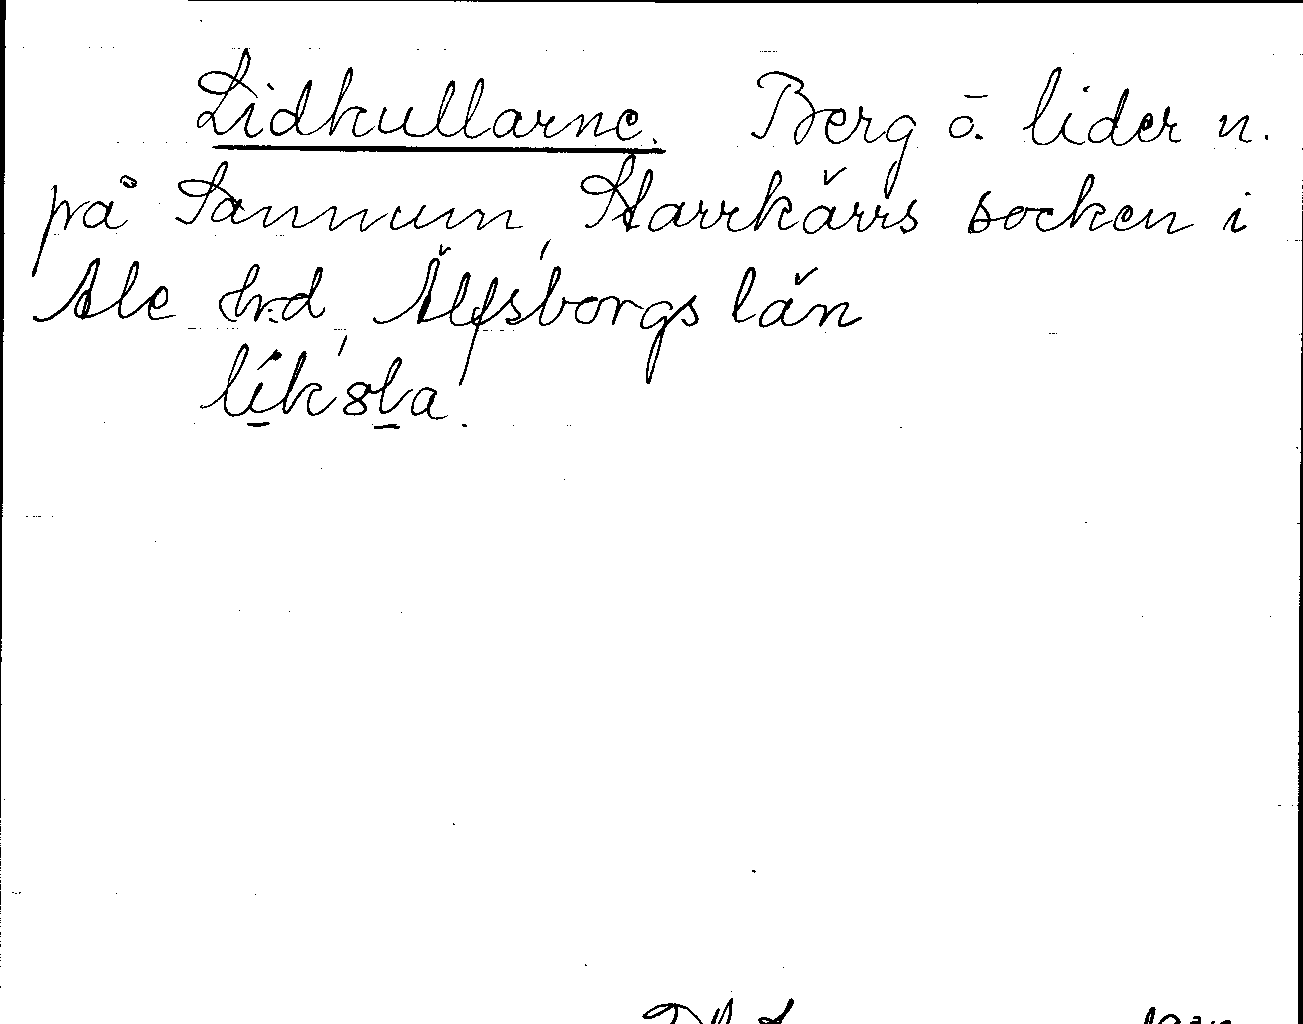 Lidkullarne. Berg o. lider n.
på Sannum, Starrkärrs socken i
Ale hd, Älfsborgs län